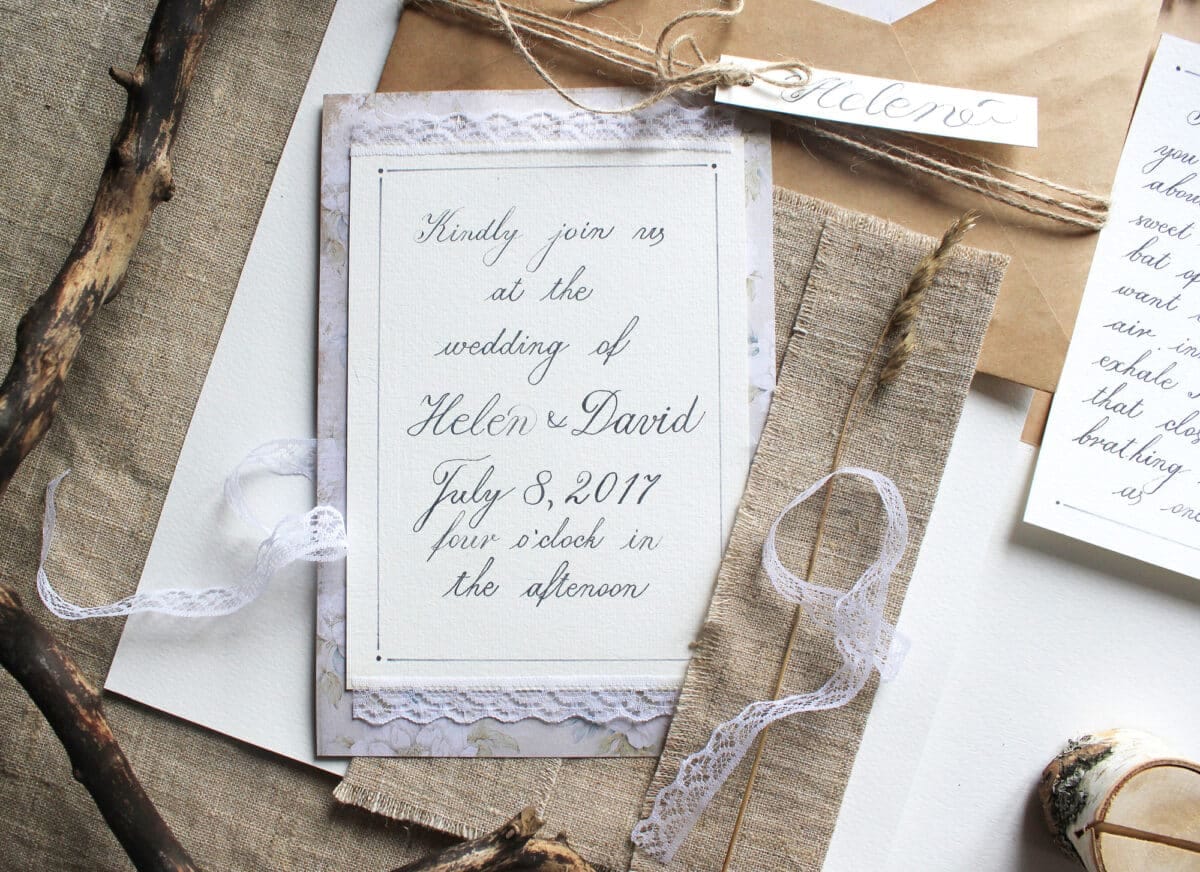 Helen
Kindly join us
at the
wedding of
Helen & David
July 8, 2017
four o'clock in
the aftenoon
you
sweet
bat
want
air
exhale
that
brathing
as